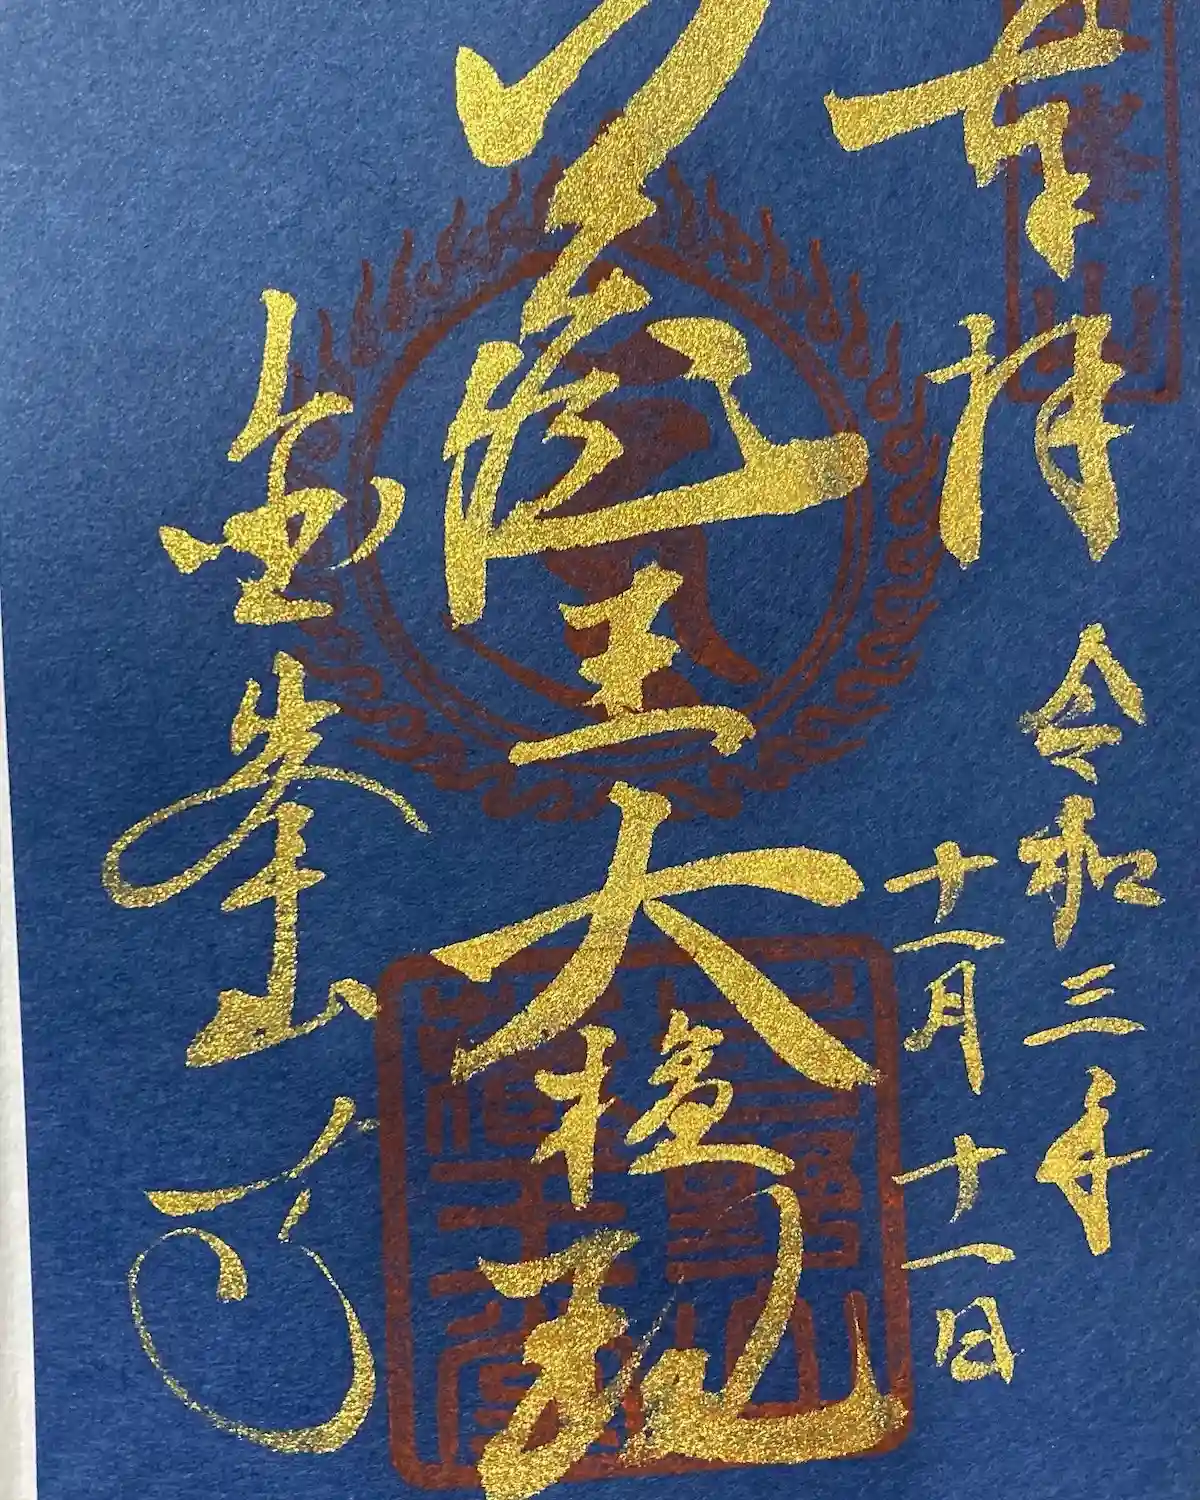 奉拝 令和三年
十一月十一日
蔵王大権現
金峯山寺